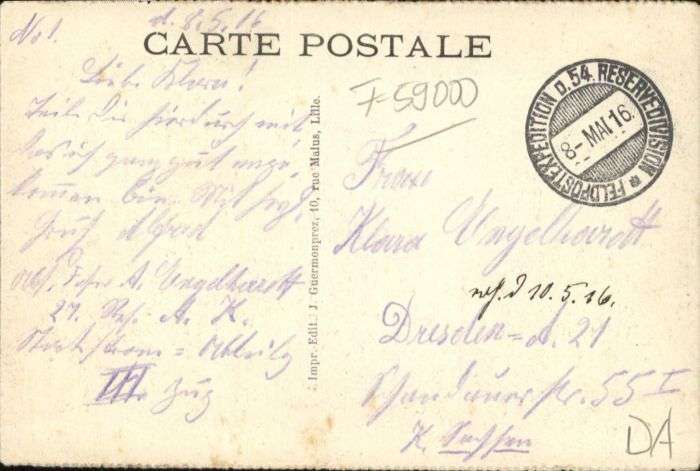 No 1.
d. 8.5.16
CARTE POSTALE
Liebe Klara!
Teile Dir hierdurch mit,
das ich ganz gut ange-
kommen bin. Mit herzl.
Gruß Alfred
Abs. Fahr. A. Engelhardt
27. Res. A. K.
Starkstrom-Abteilg
III. Zug
Impr. Edit. J. Guermonprez, 10, rue Malus, Lille.
F-59000
FELDPOSTEXPEDITION D. 54. RESERVEDIVISION
8- MAI 16.
Frau
Klara Engelhardt
10.5.16.
Dresden-A. 21
Schandauerstr. 55 I
K. Sachsen
DA